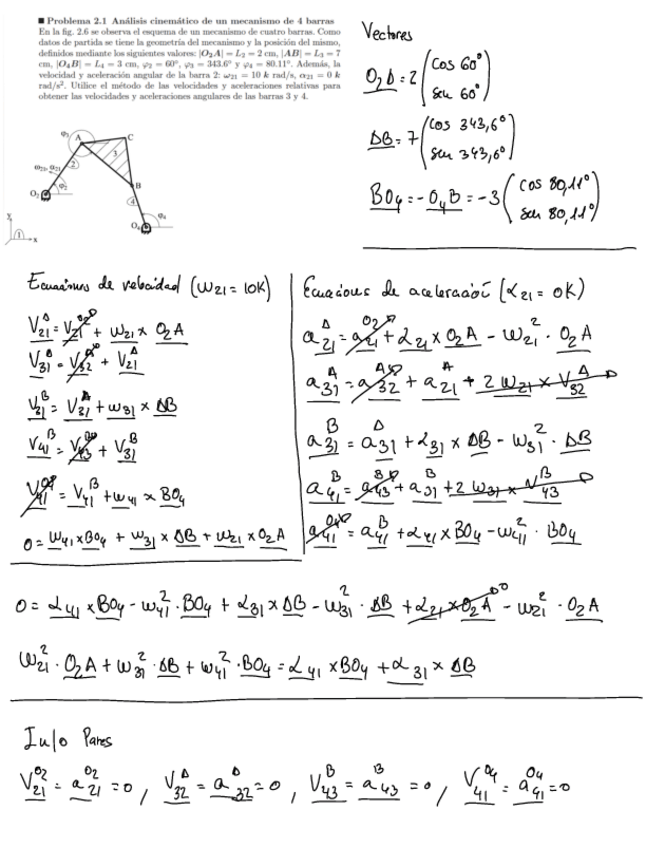 ■ Problema 2.1 Análisis cinemático de un mecanismo de 4 barras
En la fig. 2.6 se observa el esquema de un mecanismo de cuatro barras. Como
datos de partida se tiene la geometría del mecanismo y la posición del mismo,
definidos mediante los siguientes valores: |O₂A| = L₂ = 2 cm, |AB| = L₃ = 7
cm, |O₄B| = L₄ = 3 cm, φ₂ = 60°, φ₃ = 343.6° y φ₄ = 80.11°. Además, la
velocidad y aceleración angular de la barra 2: ω₂₁ = 10 k rad/s, α₂₁ = 0 k
rad/s². Utilice el método de las velocidades y aceleraciones relativas para
obtener las velocidades y aceleraciones angulares de las barras 3 y 4.
φ₃ A C
3
ω₂₁, α₂₁ 2
φ₂ B
O₂ 4
φ₄
O₄
y
1 x
Vectores
O₂A = 2 (cos 60° sen 60°)
AB = 7 (cos 343,6° sen 343,6°)
BO₄ = -O₄B = -3 (cos 80,11° sen 80,11°)
Ecuaciones de velocidad (ω₂₁ = 10K)
V₂₁^A = V₂₁^O₂ + ω₂₁ × O₂A
V₃₁^A = V₃₂^A + V₂₁^A
V₃₁^B = V₃₁^A + ω₃₁ × AB
V₄₁^B = V₄₃^B + V₃₁^B
V₄₁^O₄ = V₄₁^B + ω₄₁ × BO₄
0 = ω₄₁ × BO₄ + ω₃₁ × AB + ω₂₁ × O₂A
Ecuaciones de aceleración (α₂₁ = 0K)
a₂₁^A = a₂₁^O₂ + α₂₁ × O₂A - ω₂₁² · O₂A
a₃₁^A = a₃₂^A + a₂₁^A + 2 ω₂₁ × V₃₂^A
a₃₁^B = a₃₁^A + α₃₁ × AB - ω₃₁² · AB
a₄₁^B = a₄₃^B + a₃₁^B + 2 ω₃₁ × V₄₃^B
a₄₁^O₄ = a₄₁^B + α₄₁ × BO₄ - ω₄₁² · BO₄
0 = α₄₁ × BO₄ - ω₄₁² · BO₄ + α₃₁ × AB - ω₃₁² · AB + α₂₁ × O₂A - ω₂₁² · O₂A
ω₂₁² · O₂A + ω₃₁² · AB + ω₄₁² · BO₄ = α₄₁ × BO₄ + α₃₁ × AB
Info Pares
V₂₁^O₂ = a₂₁^O₂ = 0, V₃₂^A = a₃₂^A = 0, V₄₃^B = a₄₃^B = 0, V₄₁^O₄ = a₄₁^O₄ = 0